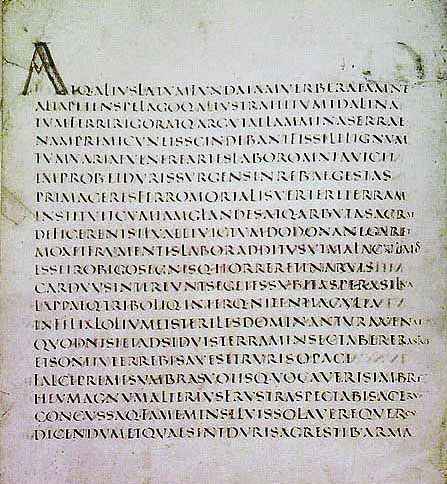 ATQ·ALIVSLATVMFVNDAIAMVERBERATAMNE
ALTAPETENSPELAGOQ·ALIVSTRAHITVMIDALINA
TVMFERRIRIGORATQ·ARGVTAELAMMINASERRAE
NAMPRIMICVNEISSCINDEBANTFISSILELIGNVM
TVMVARIAEVENEREARTESLABOROMNIAVICIT
IMPROBETDVRISVRGENSINREBVSEGESTAS
PRIMACERESFERROMORTALISVERTERETERRAM
INSTITVITCVMIAMGLANDESATQ·ARBVTASACRAE
DEFICERENTSILVAEETVICTVMDODONANEGARET
MOXETFRVMENTISLABORADDITVSVTMALACVLMOS
ESSETROBIGOSEGNISQ·HORRERETINARVIS
CARDVVSINTEREVNTSEGETESSVBITASPERASILVA
LAPPAEQ·TRIBOLIQ·INTERQ·NITENTIACVLTA
INFELIXLOLIVMETSTERILESDOMINANTVRAVENAE
QVODNISIETADSIDVISTERRAMINSECTABERERASTRIS
ETSONITVTERREBISAVESETRVRISOPACI
FALCEPREMESVMBRASVOTISQ·VOCAVERISIMBRE
HEVMAGNVMALTERIVSFRVSTRASPECTABISACERV
CONCVSSAQ·FAMEMINSILVISSOLAVEREQVERCV
DICENDVMETQVAESINTDVRISAGRESTIB·ARMA